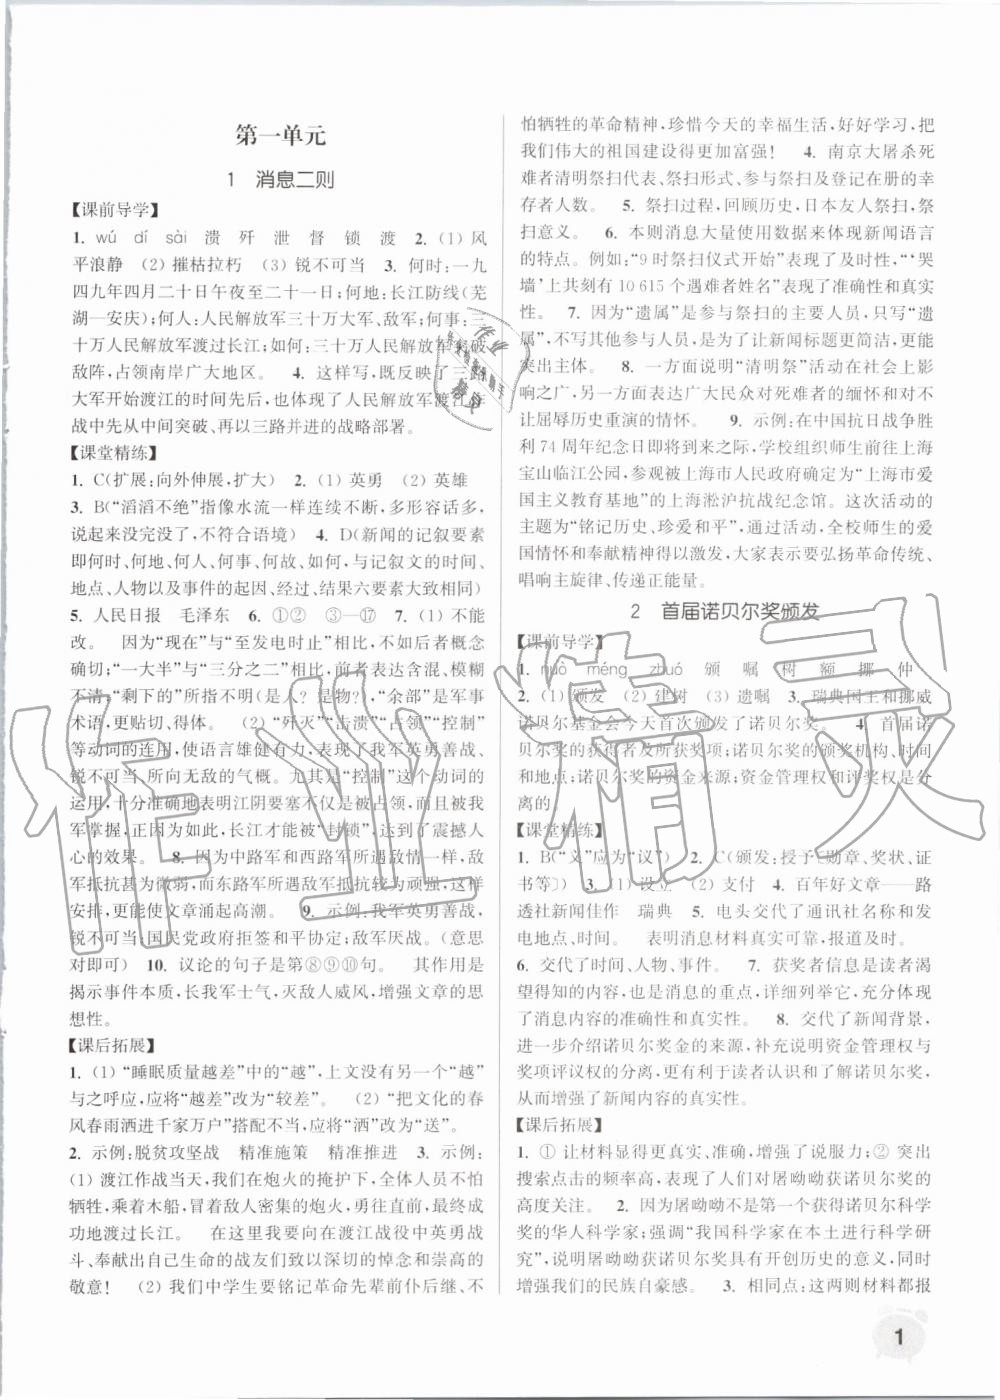 第一单元
1 消息二则
【课前导学】
1. wú dí sài 溃 歼 泄 督 锁 渡 2. (1) 风
平浪静 (2) 摧枯拉朽 (3) 锐不可当 3. 何时:一九
四九年四月二十日午夜至二十一日;何地:长江防线(芜
湖—安庆);何人:人民解放军三十万大军、敌军;何事:三
十万人民解放军渡过长江;如何:三十万人民解放军突破
敌阵,占领南岸广大地区。 4. 这样写,既反映了三路
大军开始渡江的时间先后,也体现了人民解放军渡江作
战中先从中间突破、再以三路并进的战略部署。
【课堂精练】
1. C(扩展:向外伸展,扩大) 2. (1) 英勇 (2) 英雄
3. B(“滔滔不绝”指像水流一样连续不断,多形容话多,
说起来没完没了,不符合语境) 4. D(新闻的记叙要素
即何时、何地、何人、何事、何故、如何,与记叙文的时间、
地点、人物以及事件的起因、经过、结果六要素大致相同)
5. 人民日报 毛泽东 6. ①② ③—⑰ 7. (1) 不能
改。 因为“现在”与“至发电时止”相比,不如后者概念
确切;“一大半”与“三分之二”相比,前者表达含混、模糊
不清;“剩下的”所指不明(是人?是物?),“余部”是军事
术语,更贴切、得体。 (2) “歼灭”“击溃”“占领”“控制”
等动词的连用,使语言雄健有力,表现了我军英勇善战、
锐不可当、所向无敌的气概。尤其是“控制”这个动词的
运用,十分准确地表明江阴要塞不仅仅是被占领,而且被我
军掌握,正因为如此,长江才能被“封锁”,达到了震撼人
心的效果。 8. 因为中路军和西路军所遇敌情一样,敌
军抵抗甚为微弱,而东路军所遇敌军抵抗较为顽强,这样
安排,更能使文章涌起高潮。 9. 示例:我军英勇善战,
锐不可当;国民党政府拒签和平协定;敌军厌战。(意思
对即可) 10. 议论的句子是第⑧⑨⑩句。 其作用是
揭示事件本质,长我军士气,灭敌人威风,增强文章的思
想性。
【课后拓展】
1. (1) “睡眠质量越差”中的“越”,上文没有另一个“越”
与之呼应,应将“越差”改为“较差”。 (2) “把文化的春
风春雨洒进千家万户”搭配不当,应将“洒”改为“送”。
2. 示例:脱贫攻坚战 精准施策 精准推进 3. 示例:
(1) 渡江作战当天,我们在炮火的掩护下,全体人员不怕
牺牲,乘着木船,冒着敌人密集的炮火,勇往直前,最终成
功地渡过长江。 在这里我要向在渡江战役中英勇战
斗、奉献出自己生命的战友们致以深切的悼念和崇高的
敬意! (2) 我们中学生要铭记革命先辈前仆后继、不
怕牺牲的革命精神,珍惜今天的幸福生活,好好学习,把
我们伟大的祖国建设得更加富强! 4. 南京大屠杀死
难者清明祭扫代表、祭扫形式、参与祭扫及登记在册的幸
存者人数。 5. 祭扫过程,回顾历史,日本友人祭扫,祭
扫意义。 6. 本则消息大量使用数据来体现新闻语言
的特点。例如:“9时祭扫仪式开始”表现了及时性,“‘哭
墙’上共刻有10 615个遇难者姓名”表现了准确性和真实
性。 7. 因为“遗属”是参与祭扫的主要人员,只写“遗
属”,不写其他参与人员,是为了让新闻标题更简洁,更能
突出主体。 8. 一方面说明“清明祭”活动在社会上影
响之广,另一方面表达广大民众对死难者的缅怀和对不
让屈辱历史重演的情怀。 9. 示例:在中国抗日战争胜
利74周年纪念日即将到来之际,学校组织师生前往上海
宝山临江公园,参观被上海市人民政府确定为“上海市爱
国主义教育基地”的上海淞沪抗战纪念馆。这次活动的
主题为“铭记历史、珍爱和平”,通过活动,全校师生的爱
国情怀和奉献精神得以激发,大家表示要弘扬革命传统、
唱响主旋律、传递正能量。
2 首届诺贝尔奖颁发
【课前导学】
1. nuò méng zhuó 颁 嘱 树 额 挪 仲
2. (1) 颁发 (2) 建树 (3) 遗嘱 3. 瑞典国王和挪威
诺贝尔基金会今天首次颁发了诺贝尔奖。 4. 首届诺
贝尔奖的获得者及所获奖项;诺贝尔奖的颁奖机构、时间
和地点;诺贝尔奖的资金来源;资金管理权和评奖权是分
离的。
【课堂精练】
1. B(“义”应为“议”) 2. C(颁发:授予〔勋章、奖状、证
书等〕) 3. (1) 设立 (2) 支付 4. 百年好文章——路
透社新闻佳作 瑞典 5. 电头交代了通讯社名称和发
电地点、时间。 表明消息材料真实可靠,报道及时。
6. 交代了时间、人物、事件。 7. 获奖者信息是读者渴
望得知的内容,也是消息的重点,详细列举它,充分体现
了消息内容的准确性和真实性。 8. 交代了新闻背景,
进一步介绍诺贝尔奖金的来源,补充说明资金管理权与
奖项评议权的分离,有利于读者认识和了解诺贝尔奖,
从而增强了新闻内容的真实性。
【课后拓展】
1. ① 让材料显得更真实、准确,增强了说服力;② 突出
搜索点击的频率高,体现了人们对屠呦呦获诺贝尔奖的
高度关注。 2. 因为屠呦呦不是第一个获得诺贝尔科学
奖的华人科学家;强调“我国科学家在本土进行科学研
究”,说明屠呦呦获诺贝尔奖具有开创历史的意义,同时
增强我们的民族自豪感。 3. 相同点:这两则材料都报
1
作业精灵